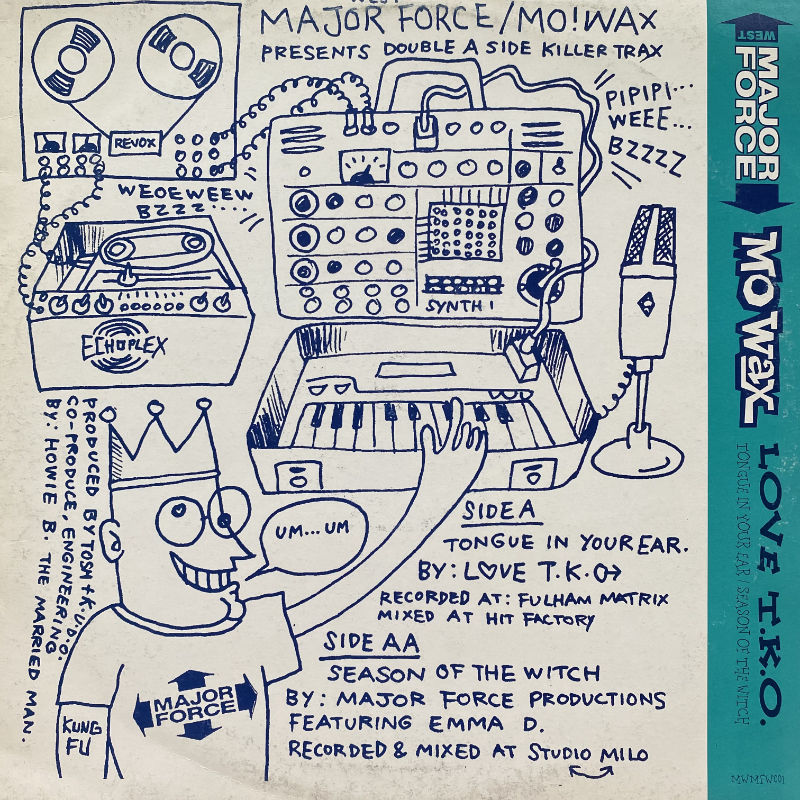 WEST
MAJOR FORCE/MO!WAX
PRESENTS DOUBLE A SIDE KILLER TRAX
REVOX
PIPIPI...
WEEE...
BZZZZ
WEOEWEEW
BZZZ.....
SYNTHI
ECHOPLEX
PRODUCED BY TOSH + K.U.D.O.
CO-PRODUCE, ENGINEERING
BY: HOWIE B. THE MARRIED MAN.
UM... UM
SIDE A
TONGUE IN YOUR EAR.
BY: L♡VE T.K.O→
RECORDED AT: FULHAM MATRIX
MIXED AT HIT FACTORY
SIDE AA
SEASON OF THE WITCH
BY: MAJOR FORCE PRODUCTIONS
FEATURING EMMA D.
RECORDED & MIXED AT STUDIO MILO
MAJOR
FORCE
KUNG
FU
WEST
MAJOR
FORCE
MO WAX
LOVE T.K.O.
TONGUE IN YOUR EAR / SEASON OF THE WITCH
MWMFW001